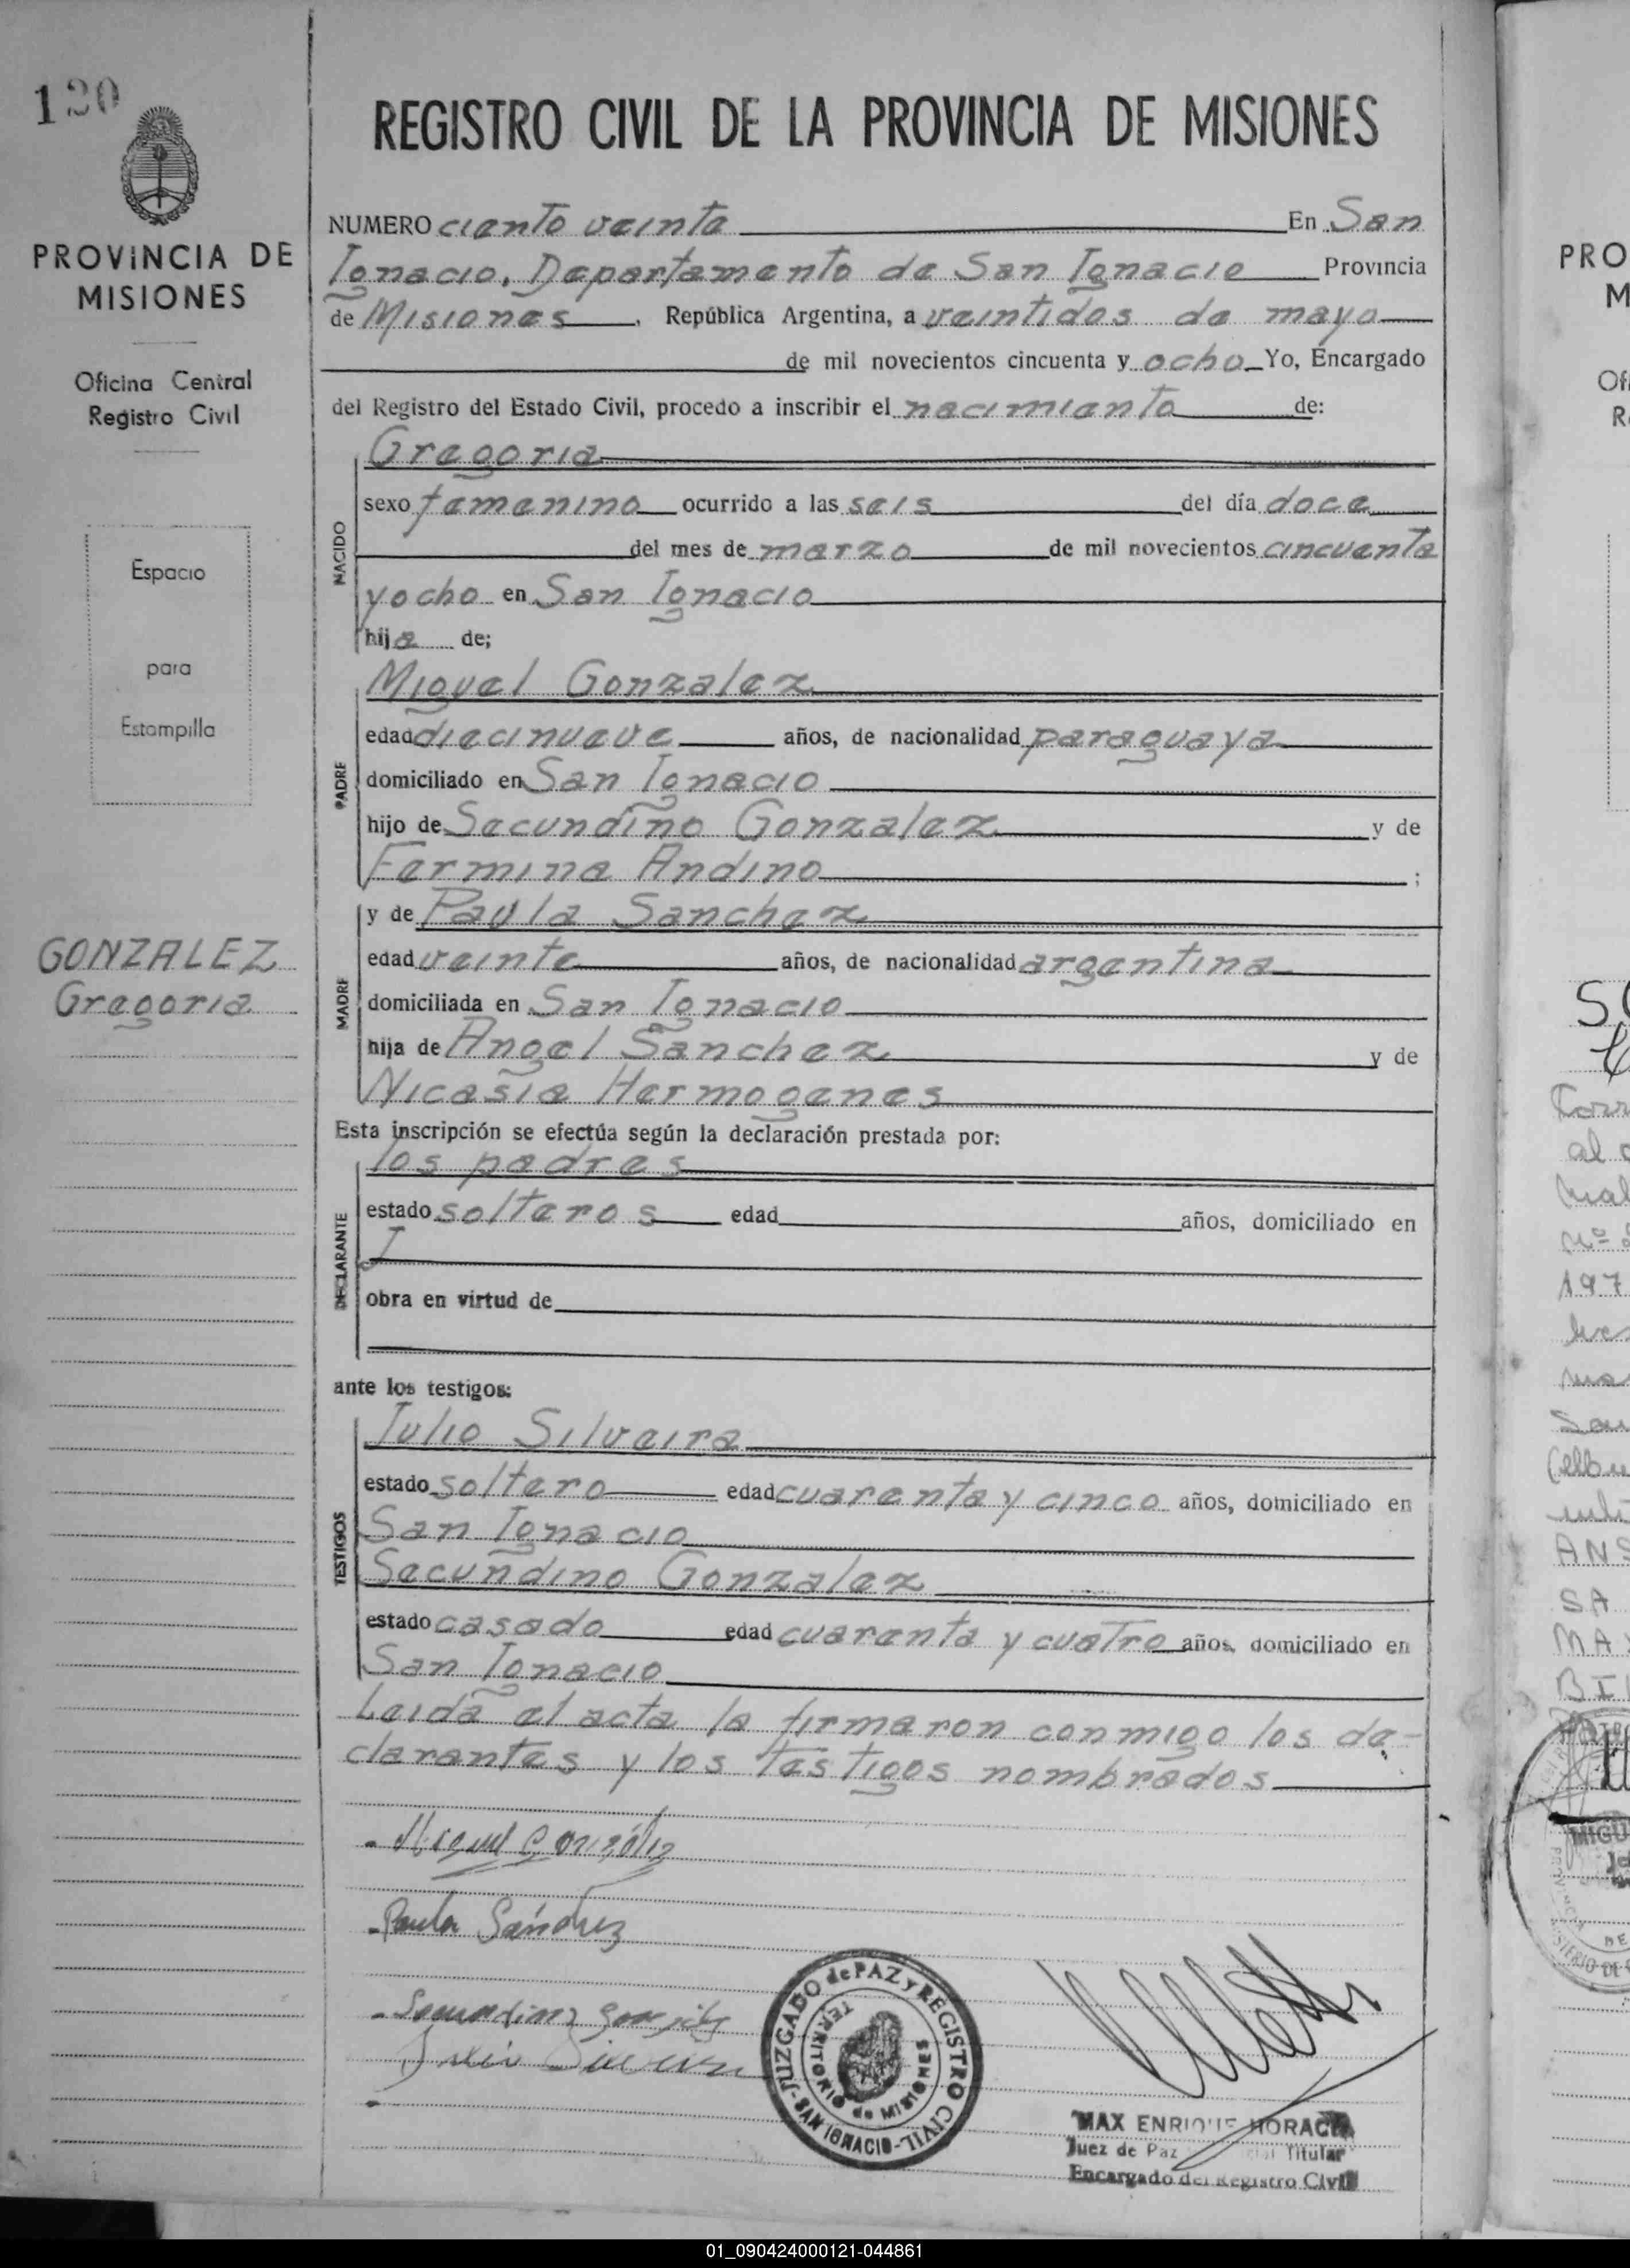 120
REGISTRO CIVIL DE LA PROVINCIA DE MISIONES
PROVINCIA DE
MISIONES
Oficina Central
Registro Civil
Espacio
para
Estampilla
GONZALEZ
Gregoria
NUMERO ciento veinte En San
Ignacio, Departamento de San Ignacio Provincia
de Misiones, República Argentina, a veintidos de mayo
de mil novecientos cincuenta y ocho Yo, Encargado
del Registro del Estado Civil, procedo a inscribir el nacimiento de:
NACIDO
Gregoria
sexo femenino ocurrido a las seis del día doce
del mes de marzo de mil novecientos cincuenta
y ocho en San Ignacio
hija de;
PADRE
Miguel Gonzalez
edad diecinueve años, de nacionalidad paraguaya
domiciliado en San Ignacio
hijo de Secundino Gonzalez y de
Fermina Andino ;
MADRE
y de Paula Sanchez
edad veinte años, de nacionalidad argentina
domiciliada en San Ignacio
hija de Angel Sanchez y de
Nicasia Hermogenes
Esta inscripción se efectúa según la declaración prestada por:
DECLARANTE
los padres
estado solteros edad años, domiciliado en
obra en virtud de
ante los testigos:
TESTIGOS
Julio Silveira
estado soltero edad cuarenta y cinco años, domiciliado en
San Ignacio
Secundino Gonzalez
estado casado edad cuarenta y cuatro años, domiciliado en
San Ignacio
Leida el acta la firmaron conmigo los de-
clarantes y los testigos nombrados
Miguel González
Paula Sánchez
JUZGADO de PAZ y REGISTRO CIVIL - SAN IGNACIO -
TERRITORIO de MISIONES
MAX ENRIQUE HORAC
Juez de Paz Titular
Encargado del Registro Civil
PRO
M
Ofi
R
197
MIGU
01_090424000121-044861